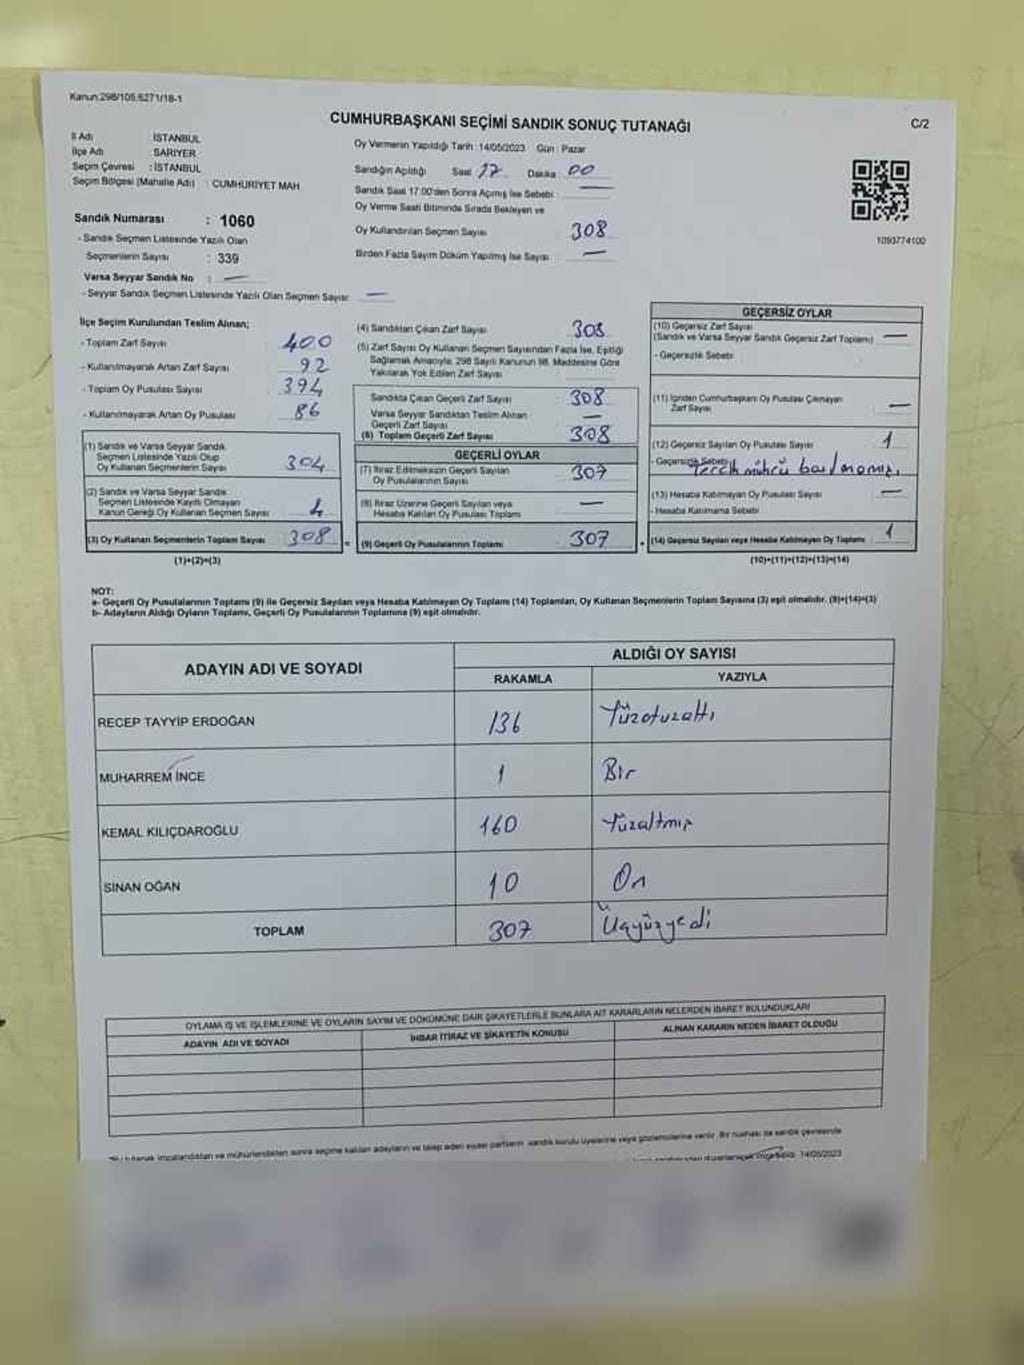 Kanun:298/105,6271/18-1
C/2
CUMHURBAŞKANI SEÇİMİ SANDIK SONUÇ TUTANAĞI
İl Adı : İSTANBUL
İlçe Adı : SARIYER
Seçim Çevresi : İSTANBUL
Seçim Bölgesi (Mahalle Adı) : CUMHURİYET MAH
Sandık Numarası : 1060
- Sandık Seçmen Listesinde Yazılı Olan
Seçmenlerin Sayısı : 339
Varsa Seyyar Sandık No : —
- Seyyar Sandık Seçmen Listesinde Yazılı Olan Seçmen Sayısı: —
Oy Vermenin Yapıldığı Tarih : 14/05/2023 Gün : Pazar
Sandığın Açıldığı Saat 17 Dakika : 00
Sandık Saat 17:00'den Sonra Açılmış İse Sebebi : —
Oy Verme Saati Bitiminde Sırada Bekleyen ve
Oy Kullandırılan Seçmen Sayısı 308
Birden Fazla Sayım Döküm Yapılmış İse Sayısı —
1093774100
İlçe Seçim Kurulundan Teslim Alınan;
- Toplam Zarf Sayısı : 400
- Kullanılmayarak Artan Zarf Sayısı : 92
- Toplam Oy Pusulası Sayısı : 394
- Kullanılmayarak Artan Oy Pusulası : 86
(1) Sandık ve Varsa Seyyar Sandık
Seçmen Listesinde Yazılı Olup
Oy Kullanan Seçmenlerin Sayısı : 304
(2) Sandık ve Varsa Seyyar Sandık
Seçmen Listesinde Kayıtlı Olmayan
Kanun Gereği Oy Kullanan Seçmen Sayısı : 4
(3) Oy Kullanan Seçmenlerin Toplam Sayısı : 308
(1)+(2)=(3)
(4) Sandıktan Çıkan Zarf Sayısı : 308
(5) Zarf Sayısı Oy Kullanan Seçmen Sayısından Fazla İse, Eşitliği
Sağlamak Amacıyla, 298 Sayılı Kanunun 98. Maddesine Göre
Yakılarak Yok Edilen Zarf Sayısı
Sandıkta Çıkan Geçerli Zarf Sayısı : 308
Varsa Seyyar Sandıktan Teslim Alınan
Geçerli Zarf Sayısı : —
(6) Toplam Geçerli Zarf Sayısı : 308
GEÇERLİ OYLAR
(7) İtiraz Edilmeksizin Geçerli Sayılan
Oy Pusulalarının Sayısı : 307
(8) İtiraz Üzerine Geçerli Sayılan veya
Hesaba Katılan Oy Pusulası Toplamı : —
= (9) Geçerli Oy Pusulalarının Toplamı : 307
GEÇERSİZ OYLAR
(10) Geçersiz Zarf Sayısı
(Sandık ve Varsa Seyyar Sandık Geçersiz Zarf Toplamı) : —
- Geçersizlik Sebebi :
(11) İçinden Cumhurbaşkanı Oy Pusulası Çıkmayan
Zarf Sayısı : —
(12) Geçersiz Sayılan Oy Pusulası Sayısı : 1
- Geçersizlik Sebebi : Tercih mührü basılmamış.
(13) Hesaba Katılmayan Oy Pusulası Sayısı : —
- Hesaba Katılmama Sebebi :
+ (14) Geçersiz Sayılan veya Hesaba Katılmayan Oy Toplamı : 1
(10)+(11)+(12)+(13)=(14)
NOT:
a- Geçerli Oy Pusulalarının Toplamı (9) ile Geçersiz Sayılan veya Hesaba Katılmayan Oy Toplamı (14) Toplamları, Oy Kullanan Seçmenlerin Toplam Sayısına (3) eşit olmalıdır. (9)+(14)=(3)
b- Adayların Aldığı Oyların Toplamı, Geçerli Oy Pusulalarının Toplamına (9) eşit olmalıdır.
ADAYIN ADI VE SOYADI
ALDIĞI OY SAYISI
RAKAMLA YAZIYLA
RECEP TAYYİP ERDOĞAN 136 Yüzotuzaltı
MUHARREM İNCE 1 Bir
KEMAL KILIÇDAROĞLU 160 Yüzaltmış
SİNAN OĞAN 10 On
TOPLAM 307 Üçyüzyedi
OYLAMA İŞ VE İŞLEMLERİNE VE OYLARIN SAYIM VE DÖKÜMÜNE DAİR ŞİKAYETLERLE BUNLARA AİT KARARLARIN NELERDEN İBARET BULUNDUKLARI
ADAYIN ADI VE SOYADI İHBAR İTİRAZ VE ŞİKAYETİN KONUSU ALINAN KARARIN NEDEN İBARET OLDUĞU
tutanak imzalandıktan ve mühürlendikten sonra seçime katılan adayların ve talep eden siyasi partilerin sandık kurulu üyelerine veya gözlemcilerine verilir. Bir nüshası da sandık çevresinde
14/05/2023